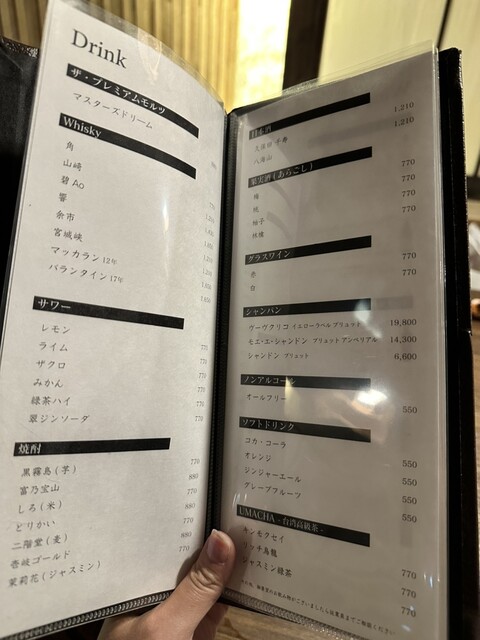 Drink
ザ・プレミアムモルツ
マスターズドリーム
Whisky
角
山崎
碧 Ao
響
余市
宮城峡
マッカラン 12年
バランタイン 17年
サワー
レモン
ライム 770
ザクロ 770
みかん 770
緑茶ハイ 770
翠ジンソーダ 770
焼酎
黒霧島(芋) 770
富乃宝山 880
しろ(米) 770
どりかい 880
二階堂(麦) 770
壱岐ゴールド 770
茉莉花(ジャスミン)
日本酒
久保田 千寿 1,210
八海山 1,210
果実酒(あらごし)
梅 770
桃 770
柚子 770
林檎 770
グラスワイン
赤 770
白 770
シャンパン
ヴーヴクリコ イエローラベル ブリュット 19,800
モエ・エ・シャンドン ブリュット アンペリアル 14,300
シャンドン ブリュット 6,600
ノンアルコール
オールフリー 550
ソフトドリンク
コカ・コーラ 550
オレンジ 550
ジンジャーエール 550
グレープフルーツ 550
UMACHA -台湾高級茶-
キンモクセイ 770
ッチ烏龍 770
ジャスミン緑茶 770